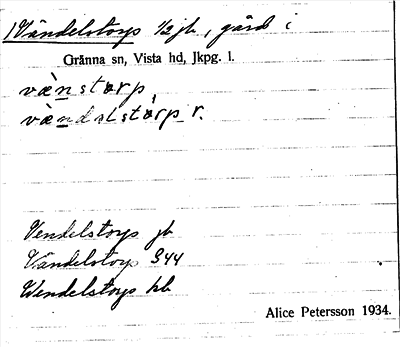 Vändelstorp 1/2 jb, gård i
Gränna sn, Vista hd, Jkpg. l.
væ̀nstɔrp,
væ̀ndəlstɔ̀rp r.
Vendelstorp jb
Vändelstorp GKK
Wendelstorp kb
Alice Petersson 1934.